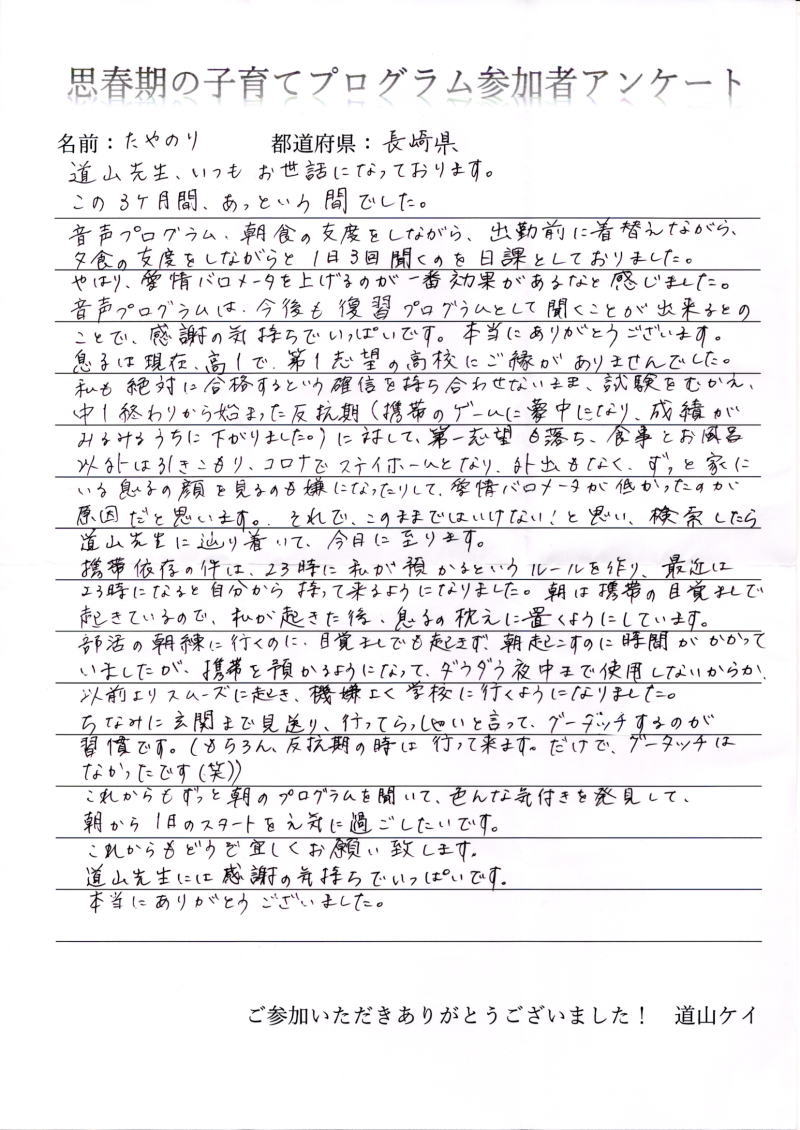 思春期の子育てプログラム参加者アンケート
名前：たやのり　都道府県：長崎県
道山先生、いつも お世話になっております。
この 3ヶ月間、あっという間でした。
音声プログラム、朝食の支度をしながら、出勤前に着替えながら、
夕食の支度をしながらと 1日3回聞くのを日課としておりました。
やはり、愛情バロメータを上げるのが一番効果があるなと感じました。
音声プログラムは、今後も復習プログラムとして聞くことが出来るとの
ことで、感謝の気持ちでいっぱいです。本当にありがとうございます。
息子は現在、高1で、第1志望の高校にご縁がありませんでした。
私も絶対に合格するという確信を持ち合わせないまま、試験をむかえ、
中1終わりから始まった反抗期（携帯のゲームに夢中になり、成績が
みるみるうちに下がりました。）に対して、第一志望も落ち、食事とお風呂
以外は引きこもり、コロナでステイホームとなり、外出もなく、ずっと家に
いる息子の顔を見るのも嫌になったりして、愛情バロメータが低かったのが
原因だと思います。それで、このままではいけない！と思い、検索したら
道山先生に辿り着いて、今日に至ります。
携帯依存の件は、23時に私が預かるというルールを作り、最近は
23時になると自分から持って来るようになりました。朝は携帯の目覚ましで
起きているので、私が起きた後、息子の枕元に置くようにしています。
部活の朝練に行くのに、目覚ましでも起きず、朝起こすのに時間がかかって
いましたが、携帯を預かるようになって、ダラダラ夜中まで使用しないからか、
以前よりスムーズに起き、機嫌よく学校に行くようになりました。
ちなみに玄関まで見送り、行ってらっしゃいと言って、グータッチするのが
習慣です。（もちろん、反抗期の時は 行って来ます。だけで、グータッチは
なかったです（笑））
これからもずっと朝のプログラムを聞いて、色んな気付きを発見して、
朝から 1日のスタートを元気に過ごしたいです。
これからもどうぞ宜しくお願い致します。
道山先生には感謝の気持ちでいっぱいです。
本当にありがとうございました。
ご参加いただきありがとうございました！　道山ケイ